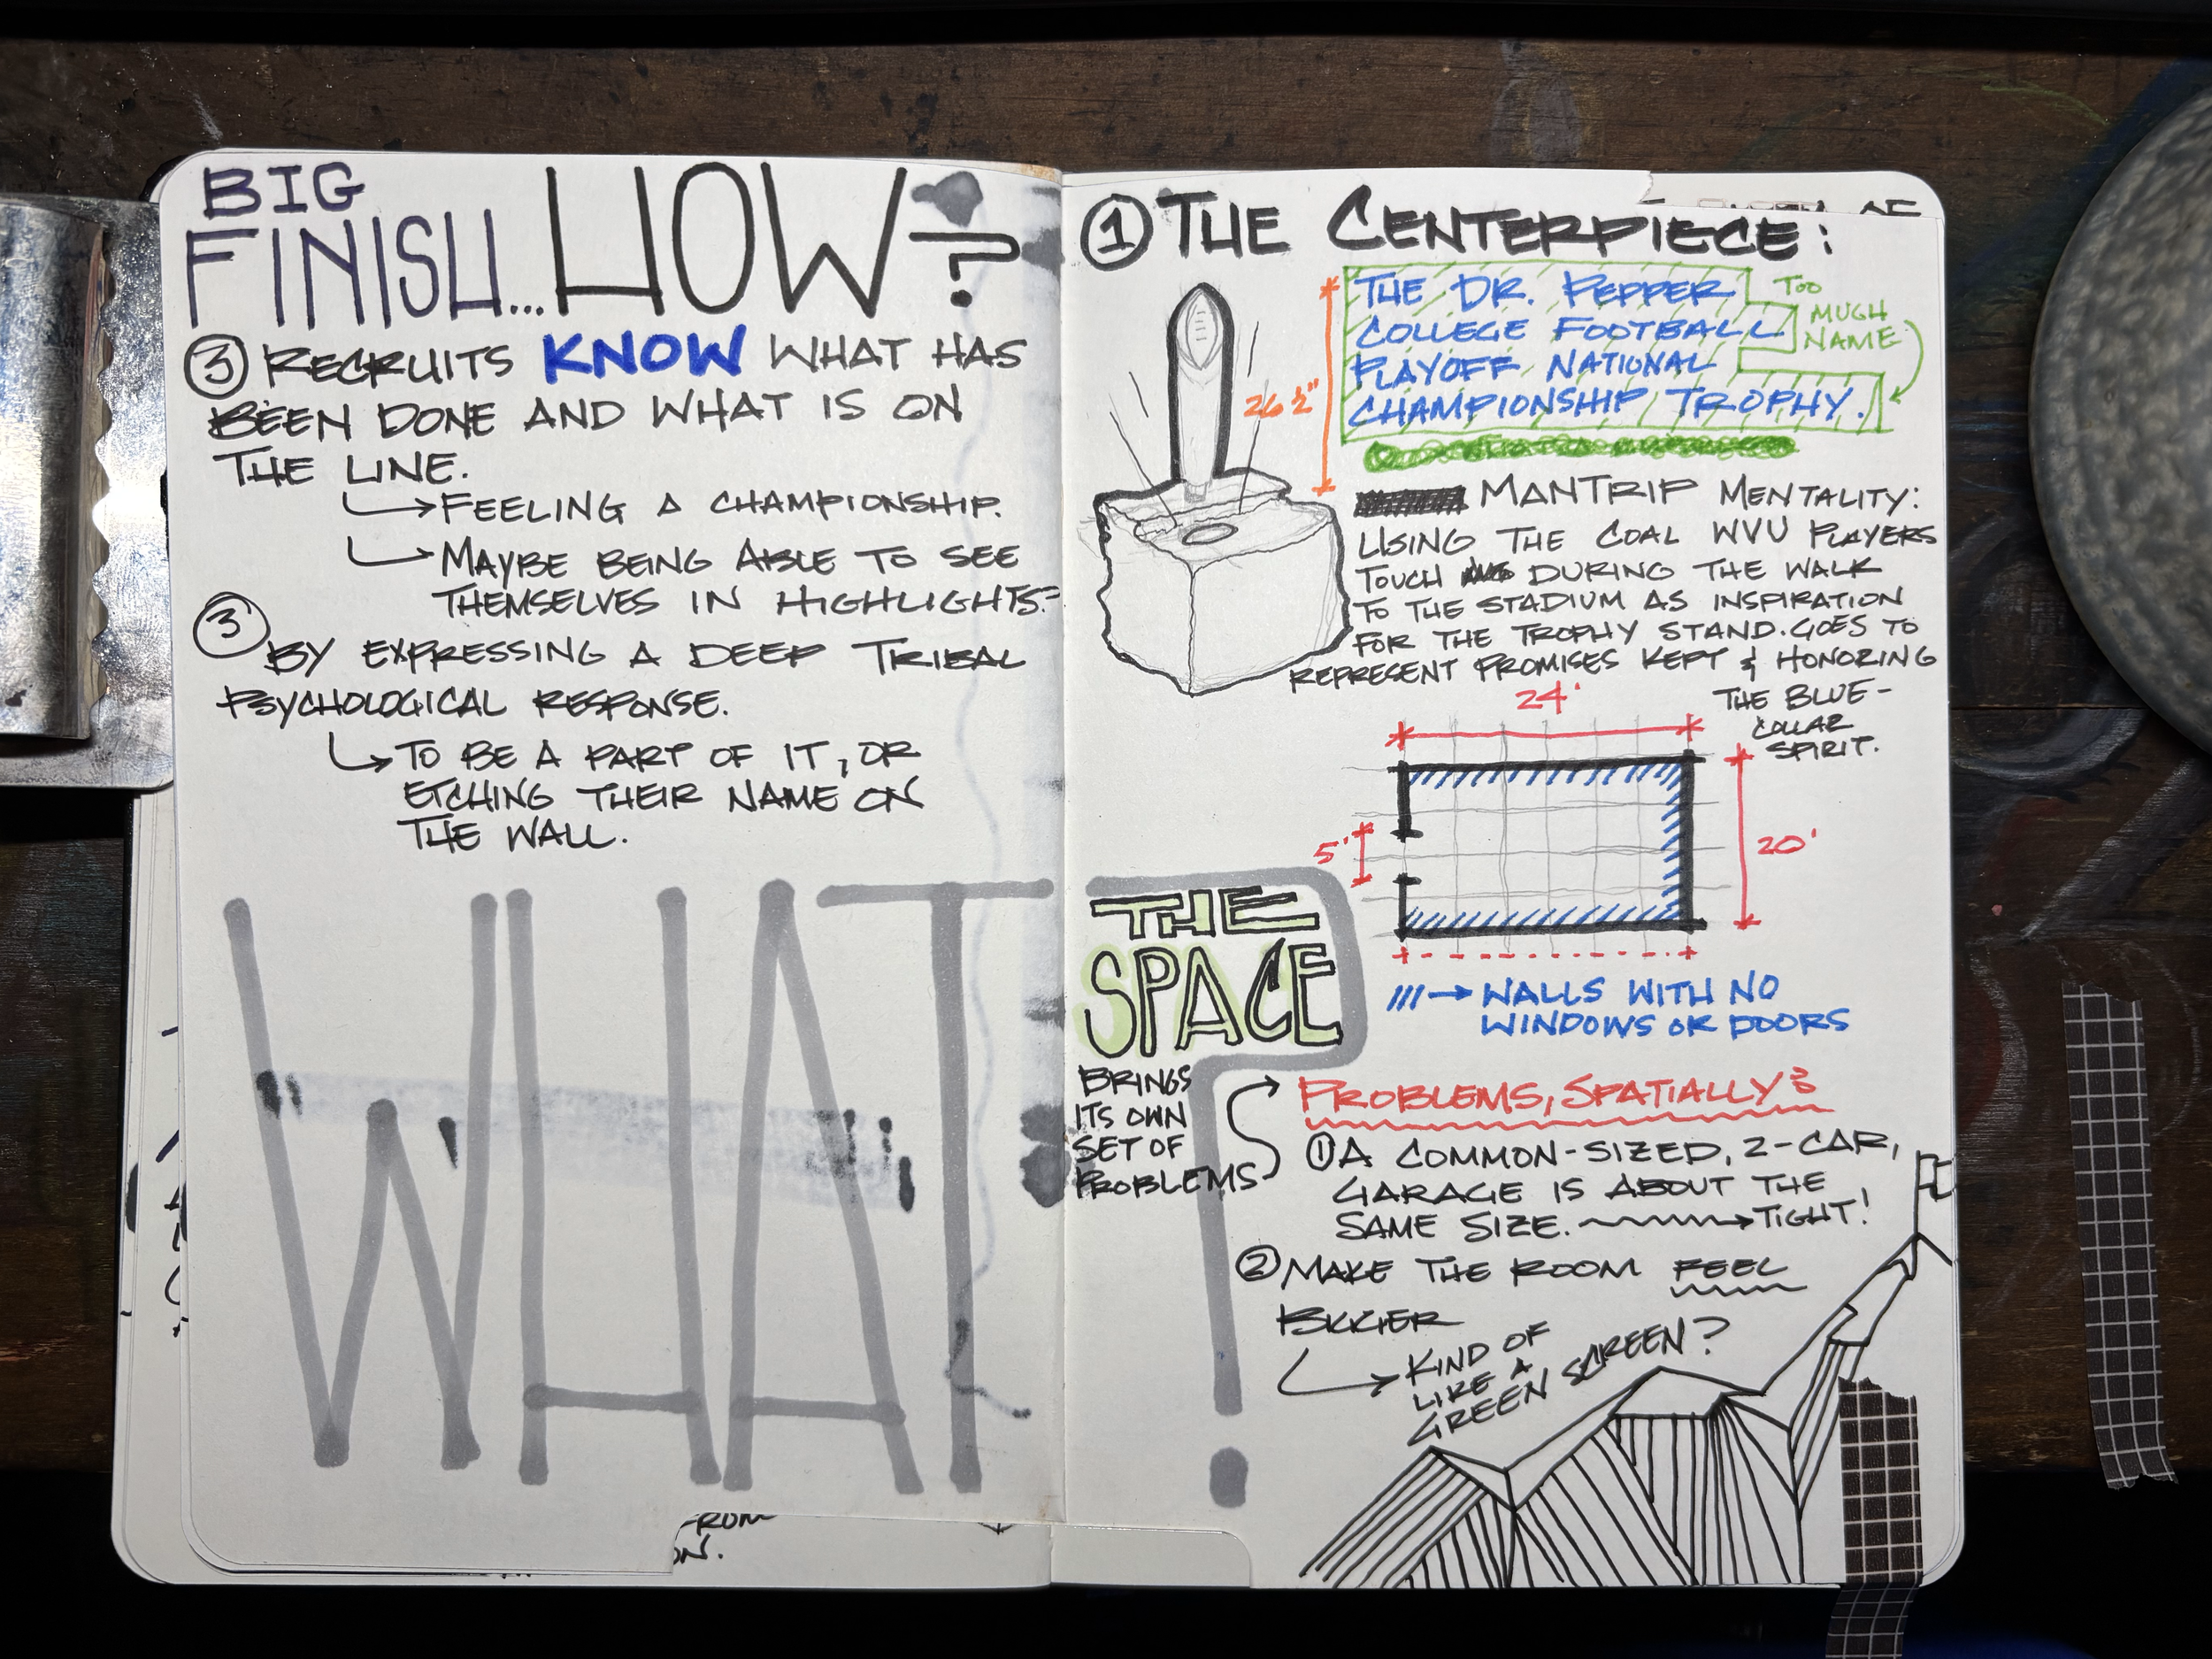 BIG
FINISH... HOW?
③ RECRUITS KNOW WHAT HAS
BEEN DONE AND WHAT IS ON
THE LINE.
FEELING A CHAMPIONSHIP.
MAYBE BEING ABLE TO SEE
THEMSELVES IN HIGHLIGHTS.
③ BY EXPRESSING A DEEP TRIBAL
PSYCHOLOGICAL RESPONSE.
TO BE A PART OF IT, OR
ETCHING THEIR NAME ON
THE WALL.
WHAT?
FROM
ON.
① THE CENTERPIECE:
THE DR. PEPPER
COLLEGE FOOTBALL
PLAYOFF NATIONAL
CHAMPIONSHIP TROPHY.
TOO
MUCH
NAME
26 1/2"
MANTRIP MENTALITY:
USING THE COAL WVU PLAYERS
TOUCH DURING THE WALK
TO THE STADIUM AS INSPIRATION
FOR THE TROPHY STAND. GOES TO
REPRESENT PROMISES KEPT & HONORING
THE BLUE-
COLLAR
SPIRIT.
24'
5'
20'
/// → WALLS WITH NO
WINDOWS OR DOORS
THE
SPACE
BRINGS
ITS OWN
SET OF
PROBLEMS
PROBLEMS, SPATIALLY:
① A COMMON-SIZED, 2-CAR,
GARAGE IS ABOUT THE
SAME SIZE. → TIGHT!
② MAKE THE ROOM FEEL
KIND OF
LIKE A
GREEN SCREEN?